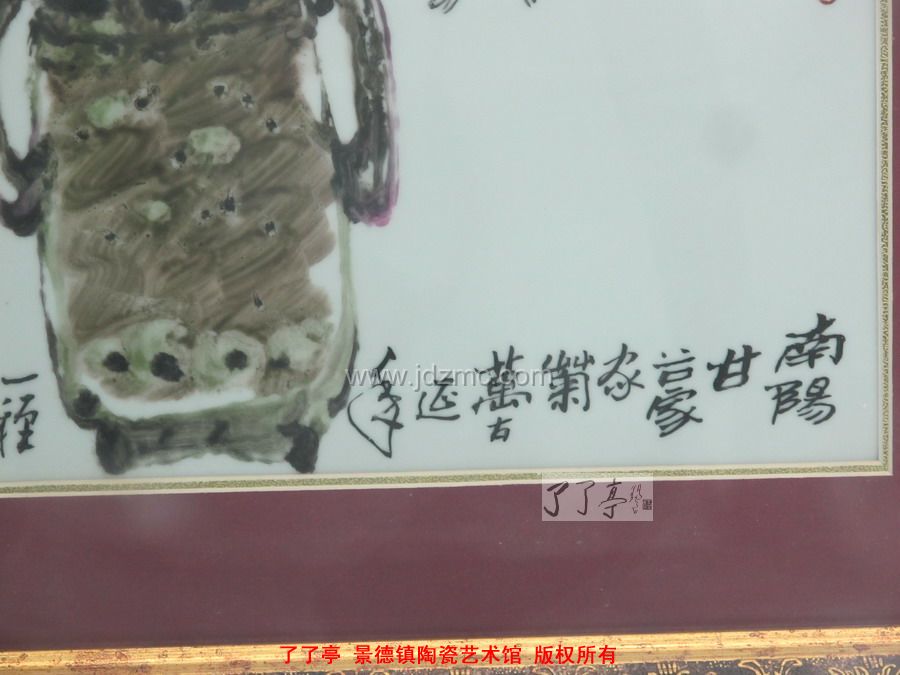 南陽
甘
谷家
家
菊
萬古
延
年
一種
www.jdzmc.com
了了亭
了了亭 景德镇陶瓷艺术馆 版权所有